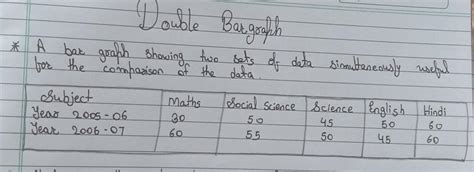 Double Bargraph
* A bar graph showing two sets of data simultaneously useful
for the comparison of the data.
Subject Maths Social Science Science English Hindi
Year 2005-06 30 50 45 50 60
Year 2006-07 60 55 50 45 60